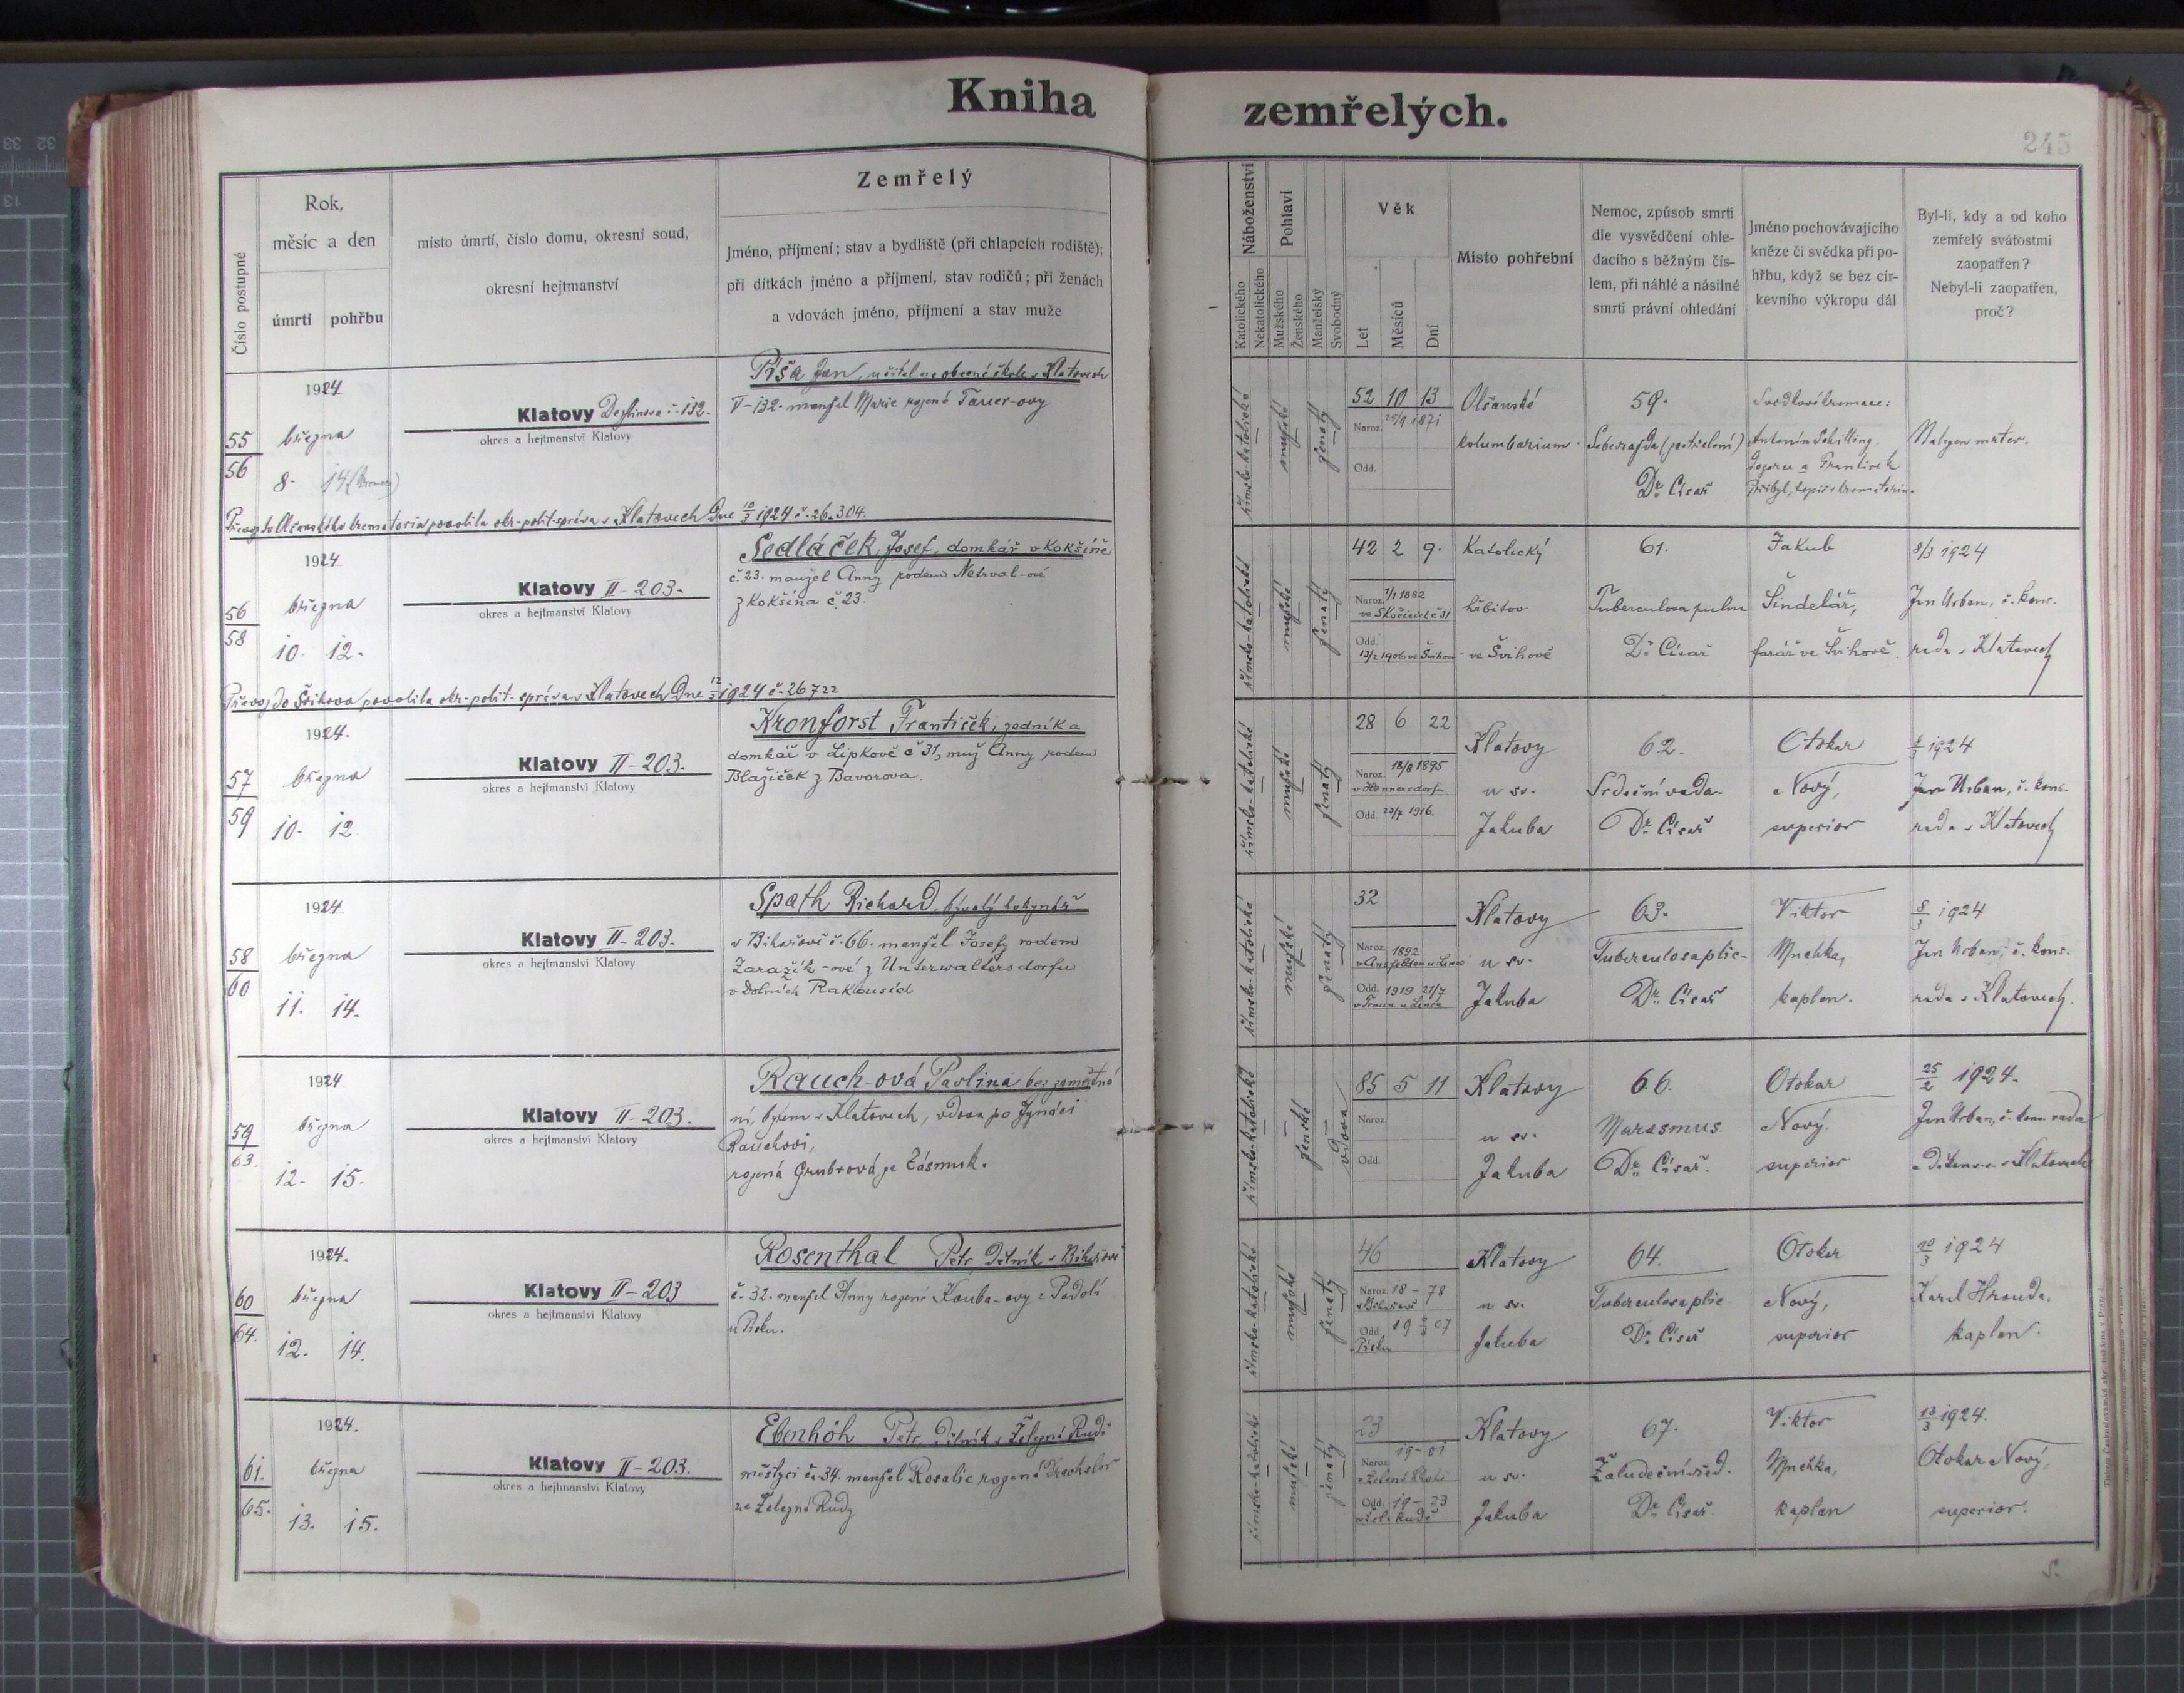 Kniha zemřelých.
245
Číslo postupné
Rok,
měsíc a den
úmrtí pohřbu
místo úmrtí, číslo domu, okresní soud,
okresní hejtmanství
Zemřelý
Jméno, příjmení; stav a bydliště (při chlapcích rodiště);
při dítkách jméno a příjmení, stav rodičů; při ženách
a vdovách jméno, příjmení a stav muže
Náboženství
Katolického
Nekatolického
Pohlaví
Mužského
Ženského
Manželský
Svobodný
Věk
Let
Měsíců
Dní
Místo pohřební
Nemoc, způsob smrti
dle vysvědčení ohle-
dacího s běžným čís-
lem, při náhlé a násilné
smrti právní ohledání
Jméno pochovávajícího
kněze či svědka při po-
hřbu, když se bez cír-
kevního výkropu dál
Byl-li, kdy a od koho
zemřelý svátostmi
zaopatřen?
Nebyl-li zaopatřen,
proč?
1924
55
56
března
8. 14
Klatovy č. 132.
okres a hejtmanství Klatovy
Píša Jan, učitel na obecné škole v Klatovech
V-132. manžel Marie rozené Tauer-ovy
římsko-katolické
mužské
ženatý
52 10 13
Naroz. 25/9 1871
Odd.
Olšanské
kolumbarium
59.
Sebevražda (zastřelení)
Dr. Císař
Antonín Schilling,
a František
Přibyl, topič krematoria.
Převoz do Olšanského krematoria povolila okr. polit. správa v Klatovech dne 10/3 1924 č. 26.304.
1924
56
58
března
10. 12.
Klatovy II-203.
okres a hejtmanství Klatovy
Sedláček Josef, domkář v Kokšíně
č. 23. manžel Anny rodem Netrval-ové
z Kokšína č. 23.
římsko-katolické
mužské
ženatý
42 2 9.
Naroz. 7/1 1882
Odd.
13/2 1906 ve Švihově
Katolický
hřbitov
ve Švihově
61.
Tuberculosa pulm
Dr. Císař
Jakub
Šindelář,
farář ve Švihově.
8/3 1924
Jan Urban, č. kons.
rada v Klatovech
Převoz do Švihova povolila okr. polit. správa v Klatovech dne 12/3 1924 č. 26722
1924.
57
59
března
10. 12
Klatovy II-203.
okres a hejtmanství Klatovy
Kronforst František, zedník a
domkář v Lipkově č 31, muž Anny rodem
Blažíček z Bavorova.
římsko-katolické
mužské
ženatý
28 6 22
Naroz. 18/8 1895
v Hennersdorfu
Odd. 23/7 1916.
Klatovy
u sv.
Jakuba
62.
Srdeční vada.
Dr. Císař
Otokar
Nový,
superior
8/3 1924
Jan Urban, č. kons.
rada v Klatovech
1924
58
60
března
11. 14.
Klatovy II-203.
okres a hejtmanství Klatovy
Spath Richard,
č. 66. manžel Josefy rodem
Zaražík-ové z Unterwaltersdorfu
v Dolních Rakousích
římsko-katolické
mužské
ženatý
32
Naroz. 1892
Odd. 1919 21/7
Klatovy
u sv.
Jakuba
63.
Tuberculosa plic
Dr. Císař
Viktor
kaplan.
8/3 1924
Jan Urban, č. kons.
rada v Klatovech.
1924
59
63.
března
12. 15.
Klatovy II-203.
okres a hejtmanství Klatovy
Rauch-ová Pavlina bez zaměstná
ní, bytem v Klatovech, vdova po Ignáci
Rauchovi,
rozená Grubrová ze Zásmuk.
římsko-katolické
ženské
vdova
85 5 11
Naroz.
Odd.
Klatovy
u sv.
Jakuba
66.
Marasmus.
Dr. Císař.
Otokar
Nový.
superior
25/2 1924.
Jan Urban, č. kons. rada
a děkan v Klatovech
1924.
60
64.
března
12. 14.
Klatovy II-203
okres a hejtmanství Klatovy
Rosenthal Petr, dělník
č. 32. manžel Anny rozené Kouba-ovy z Podolí
u Písku.
římsko-katolické
mužské
ženatý
46
Naroz. 18-78
Odd. 19 07
Písku
Klatovy
u sv.
Jakuba
64.
Tuberculosa plic
Dr. Císař
Otokar
Nový,
superior
10/3 1924
Karel Hrouda,
kaplan.
1924.
61.
65.
března
13. 15.
Klatovy II-203.
okres a hejtmanství Klatovy
Ebenhöh Petr, dělník v Železné Rudě
městysi č. 34. manžel Rosalie rozené Drachsler
ze Železné Rudy
římsko-katolické
mužské
ženatý
23
Naroz. 19-01
v Železné Rudě
Odd. 19-23
v Žel. Rudě
Klatovy
u sv.
Jakuba
67.
Žaludeční vřed.
Dr. Císař.
Viktor
kaplan
13/3 1924.
Otokar Nový,
superior.